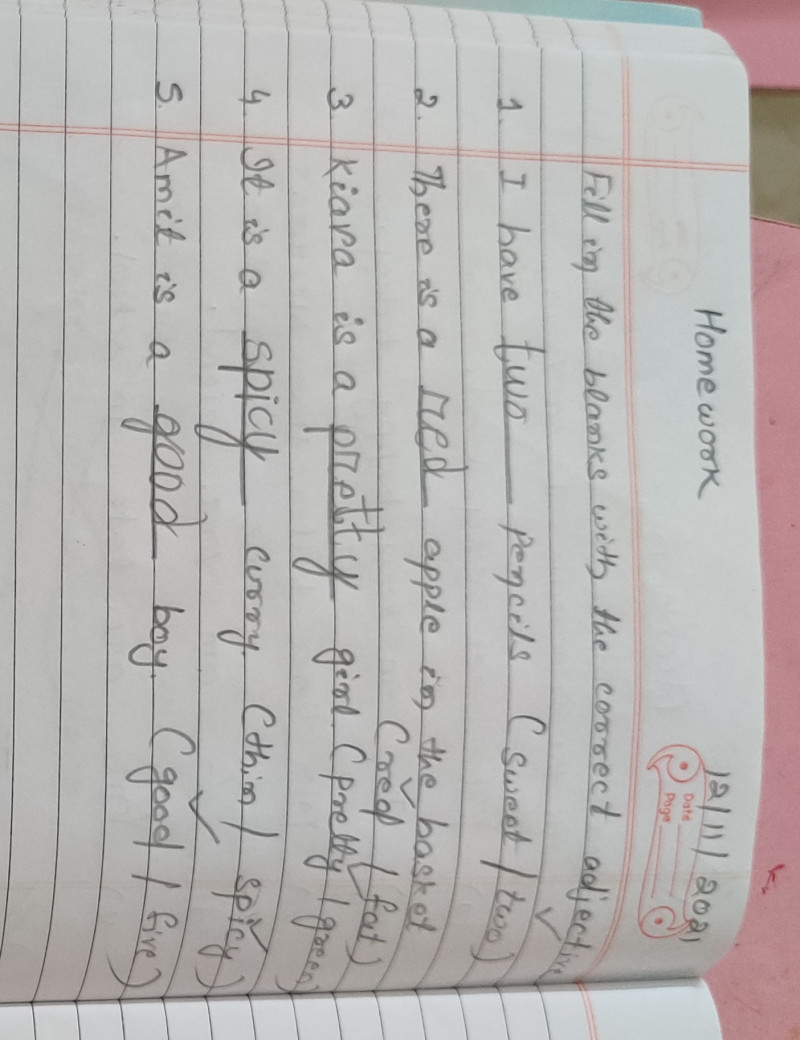 Homework
12/11/2021
Date
Page
Fill in the blanks with the correct adjective
1. I have two pencils (sweet / two)
2. There is a red apple in the basket
(red / fat)
3 Kiara is a pretty girl. (pretty / green)
4. It is a spicy curry. (thin / spicy)
5. Amit is a good boy. (good / five)